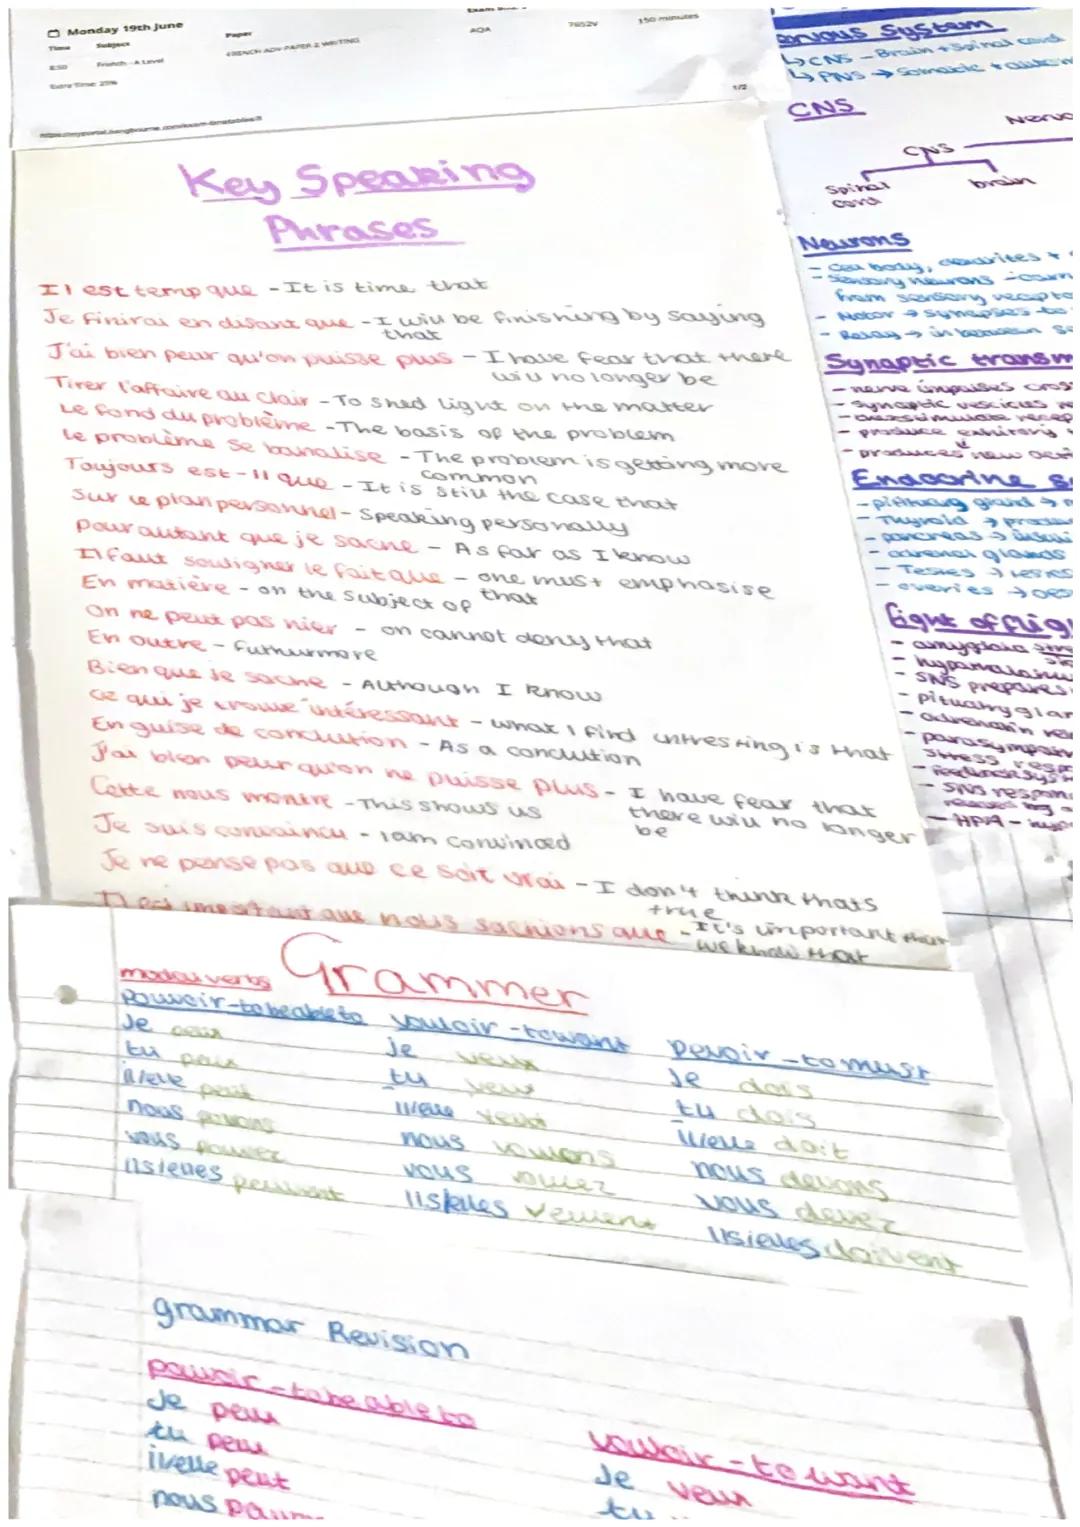 Monday 19th June
Time Subject Paper
8:50 French - A Level FRENCH ADV PAPER 2 WRITING AQA 7652V 150 minutes
Extra Time: 25%
1/2
Key Speaking
Phrases
Il est temp que - It is time that
Je finirai en disant que - I will be finishing by saying
that
J'ai bien peur qu'on puisse plus - I have fear that there
will no longer be
Tirer l'affaire au clair - To shed light on the matter
Le fond du problème - The basis of the problem
Le problème se banalise - The problem is getting more
common
Toujours est-il que - It is still the case that
Sur le plan personnel - Speaking personally
Pour autant que je sache - As far as I know
Il faut souligner le fait que - one must emphasise
that
En matière - on the subject of
On ne peut pas nier - on cannot deny that
En outre - Futhurmore
Bien que je sache - Although I know
Ce qui je trouve intéressant - what I find intresting is that
En guise de conclution - As a conclution
J'ai bien peur qu'on ne puisse plus - I have fear that
there will no longer
be
Cette nous montre - This shows us
Je suis convaincu - I am convinced
Je ne pense pas que ce soit vrai - I don't think thats
true
Il est important que nous sachions que - It's important that
we know that
Grammer
modal verbs
Pouvoir - to be able to
Je peux
tu peux
il/elle peut
nous pouvons
vous pouvez
ils/elles peuvent
Vouloir - to want
je veux
tu veux
il/elle veut
nous voulons
vous voulez
ils/elles veulent
Devoir - to must
Je dois
tu dois
il/elle doit
nous devons
vous devez
ils/elles doivent
grammar Revision
pouvoir - to be able to
Je peux
tu peux
il/elle peut
nous
vouloir - to want
Je veux
tu
System
CNS - Brain + Spinal cord
PNS → Somatic +
CNS
CNS
Spinal
cord
brain
Neurons
- cell body, dendrites +
- sensory neurons
from sensory
- Motor → synapses to
- Relay → in between
Synaptic
- nerve impulses cross
- synaptic vescicles
- produces new
Endocrine
- pituitary gland →
- Thyroid →
- pancreas →
- adrenal glands
- Testes →
- overies →
fight of
- amygdala
- SNS prepares
- pituitary
- HPA -